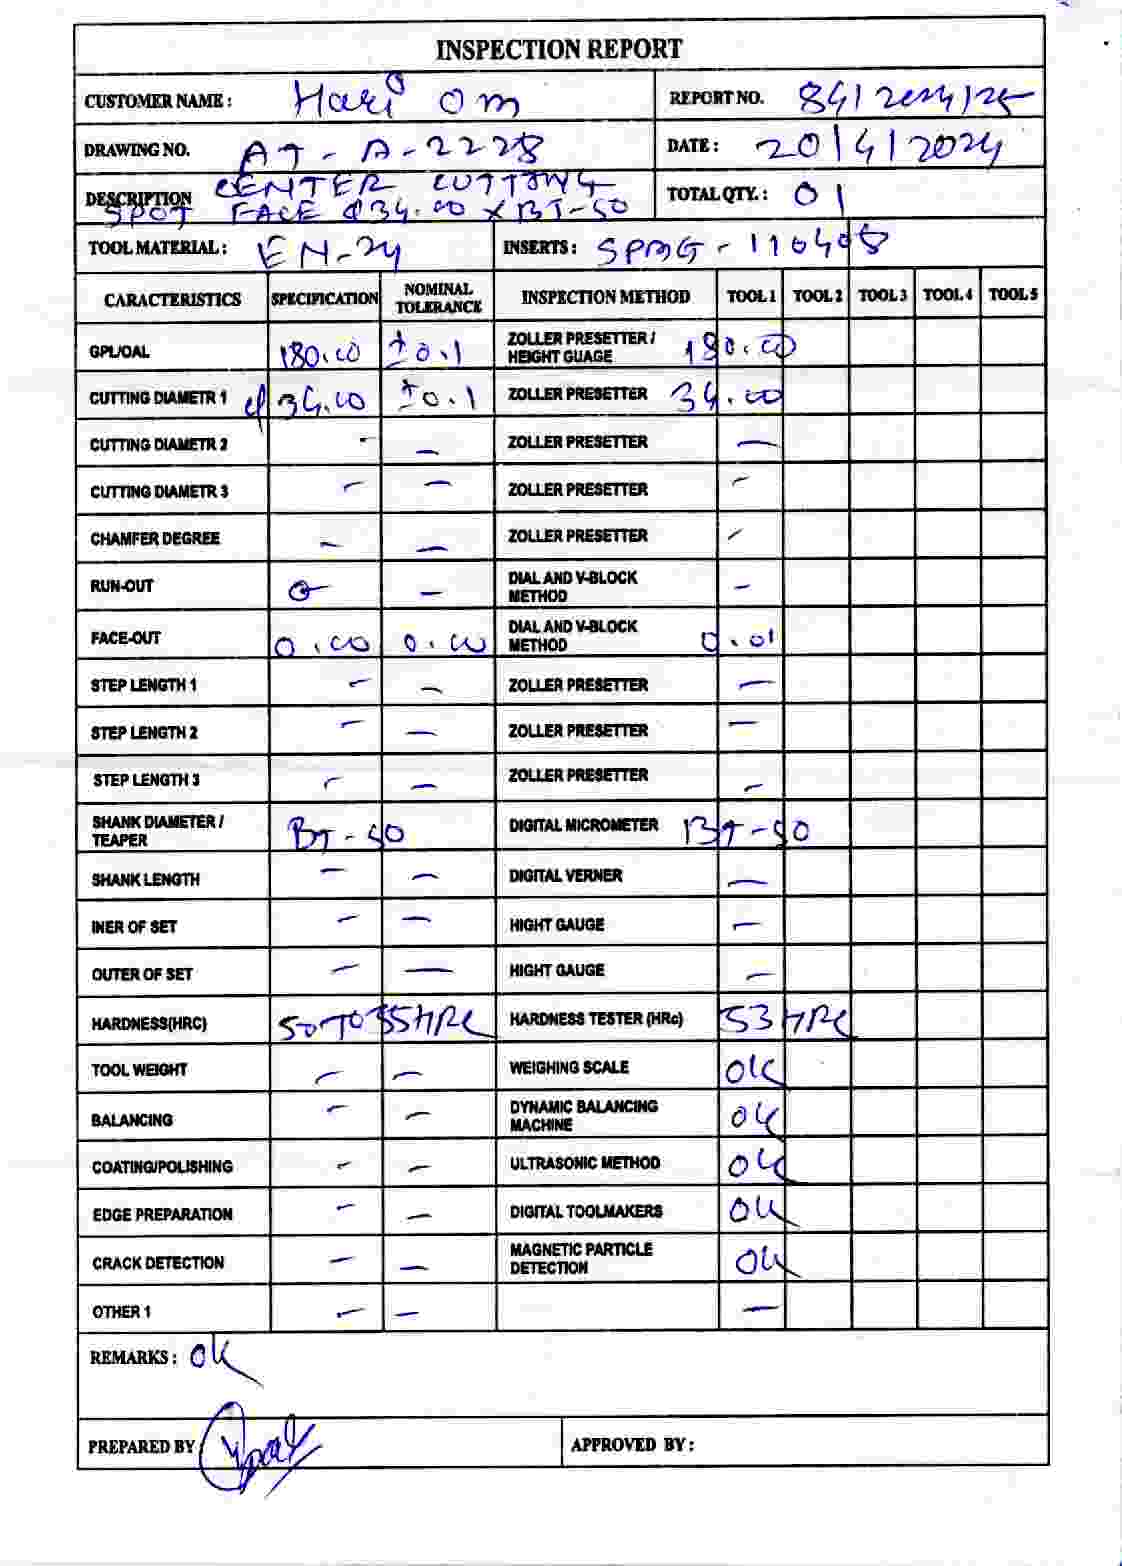 INSPECTION REPORT
CUSTOMER NAME : Hari Om REPORT NO. 84/2024/25
DRAWING NO. AT-A-2228 DATE : 20/4/2024
DESCRIPTION CENTER CUTTING TOTAL QTY. : 01
SPOT FACE Ø34.00 X BT-50
TOOL MATERIAL : EN-24 INSERTS : SPMG-110408
CARACTERISTICS SPECIFICATION NOMINAL TOLERANCE INSPECTION METHOD TOOL 1 TOOL 2 TOOL 3 TOOL 4 TOOL 5
GPL/OAL 180.00 ±0.1 ZOLLER PRESETTER / HEIGHT GUAGE 180.00
CUTTING DIAMETR 1 Ø34.00 ±0.1 ZOLLER PRESETTER 34.00
CUTTING DIAMETR 2 - - ZOLLER PRESETTER -
CUTTING DIAMETR 3 - - ZOLLER PRESETTER -
CHAMFER DEGREE - - ZOLLER PRESETTER -
RUN-OUT - - DIAL AND V-BLOCK METHOD -
FACE-OUT 0.00 0.00 DIAL AND V-BLOCK METHOD 0.01
STEP LENGTH 1 - - ZOLLER PRESETTER -
STEP LENGTH 2 - - ZOLLER PRESETTER -
STEP LENGTH 3 - - ZOLLER PRESETTER -
SHANK DIAMETER / TEAPER BT-50 DIGITAL MICROMETER BT-50
SHANK LENGTH - - DIGITAL VERNER -
INER OF SET - - HIGHT GAUGE -
OUTER OF SET - - HIGHT GAUGE -
HARDNESS(HRC) 50 TO 55 HRC HARDNESS TESTER (HRc) 53 HRC
TOOL WEIGHT - - WEIGHING SCALE OK
BALANCING - - DYNAMIC BALANCING MACHINE OK
COATING/POLISHING - - ULTRASONIC METHOD OK
EDGE PREPARATION - - DIGITAL TOOLMAKERS OK
CRACK DETECTION - - MAGNETIC PARTICLE DETECTION OK
OTHER 1 - - -
REMARKS : OK
PREPARED BY APPROVED BY :